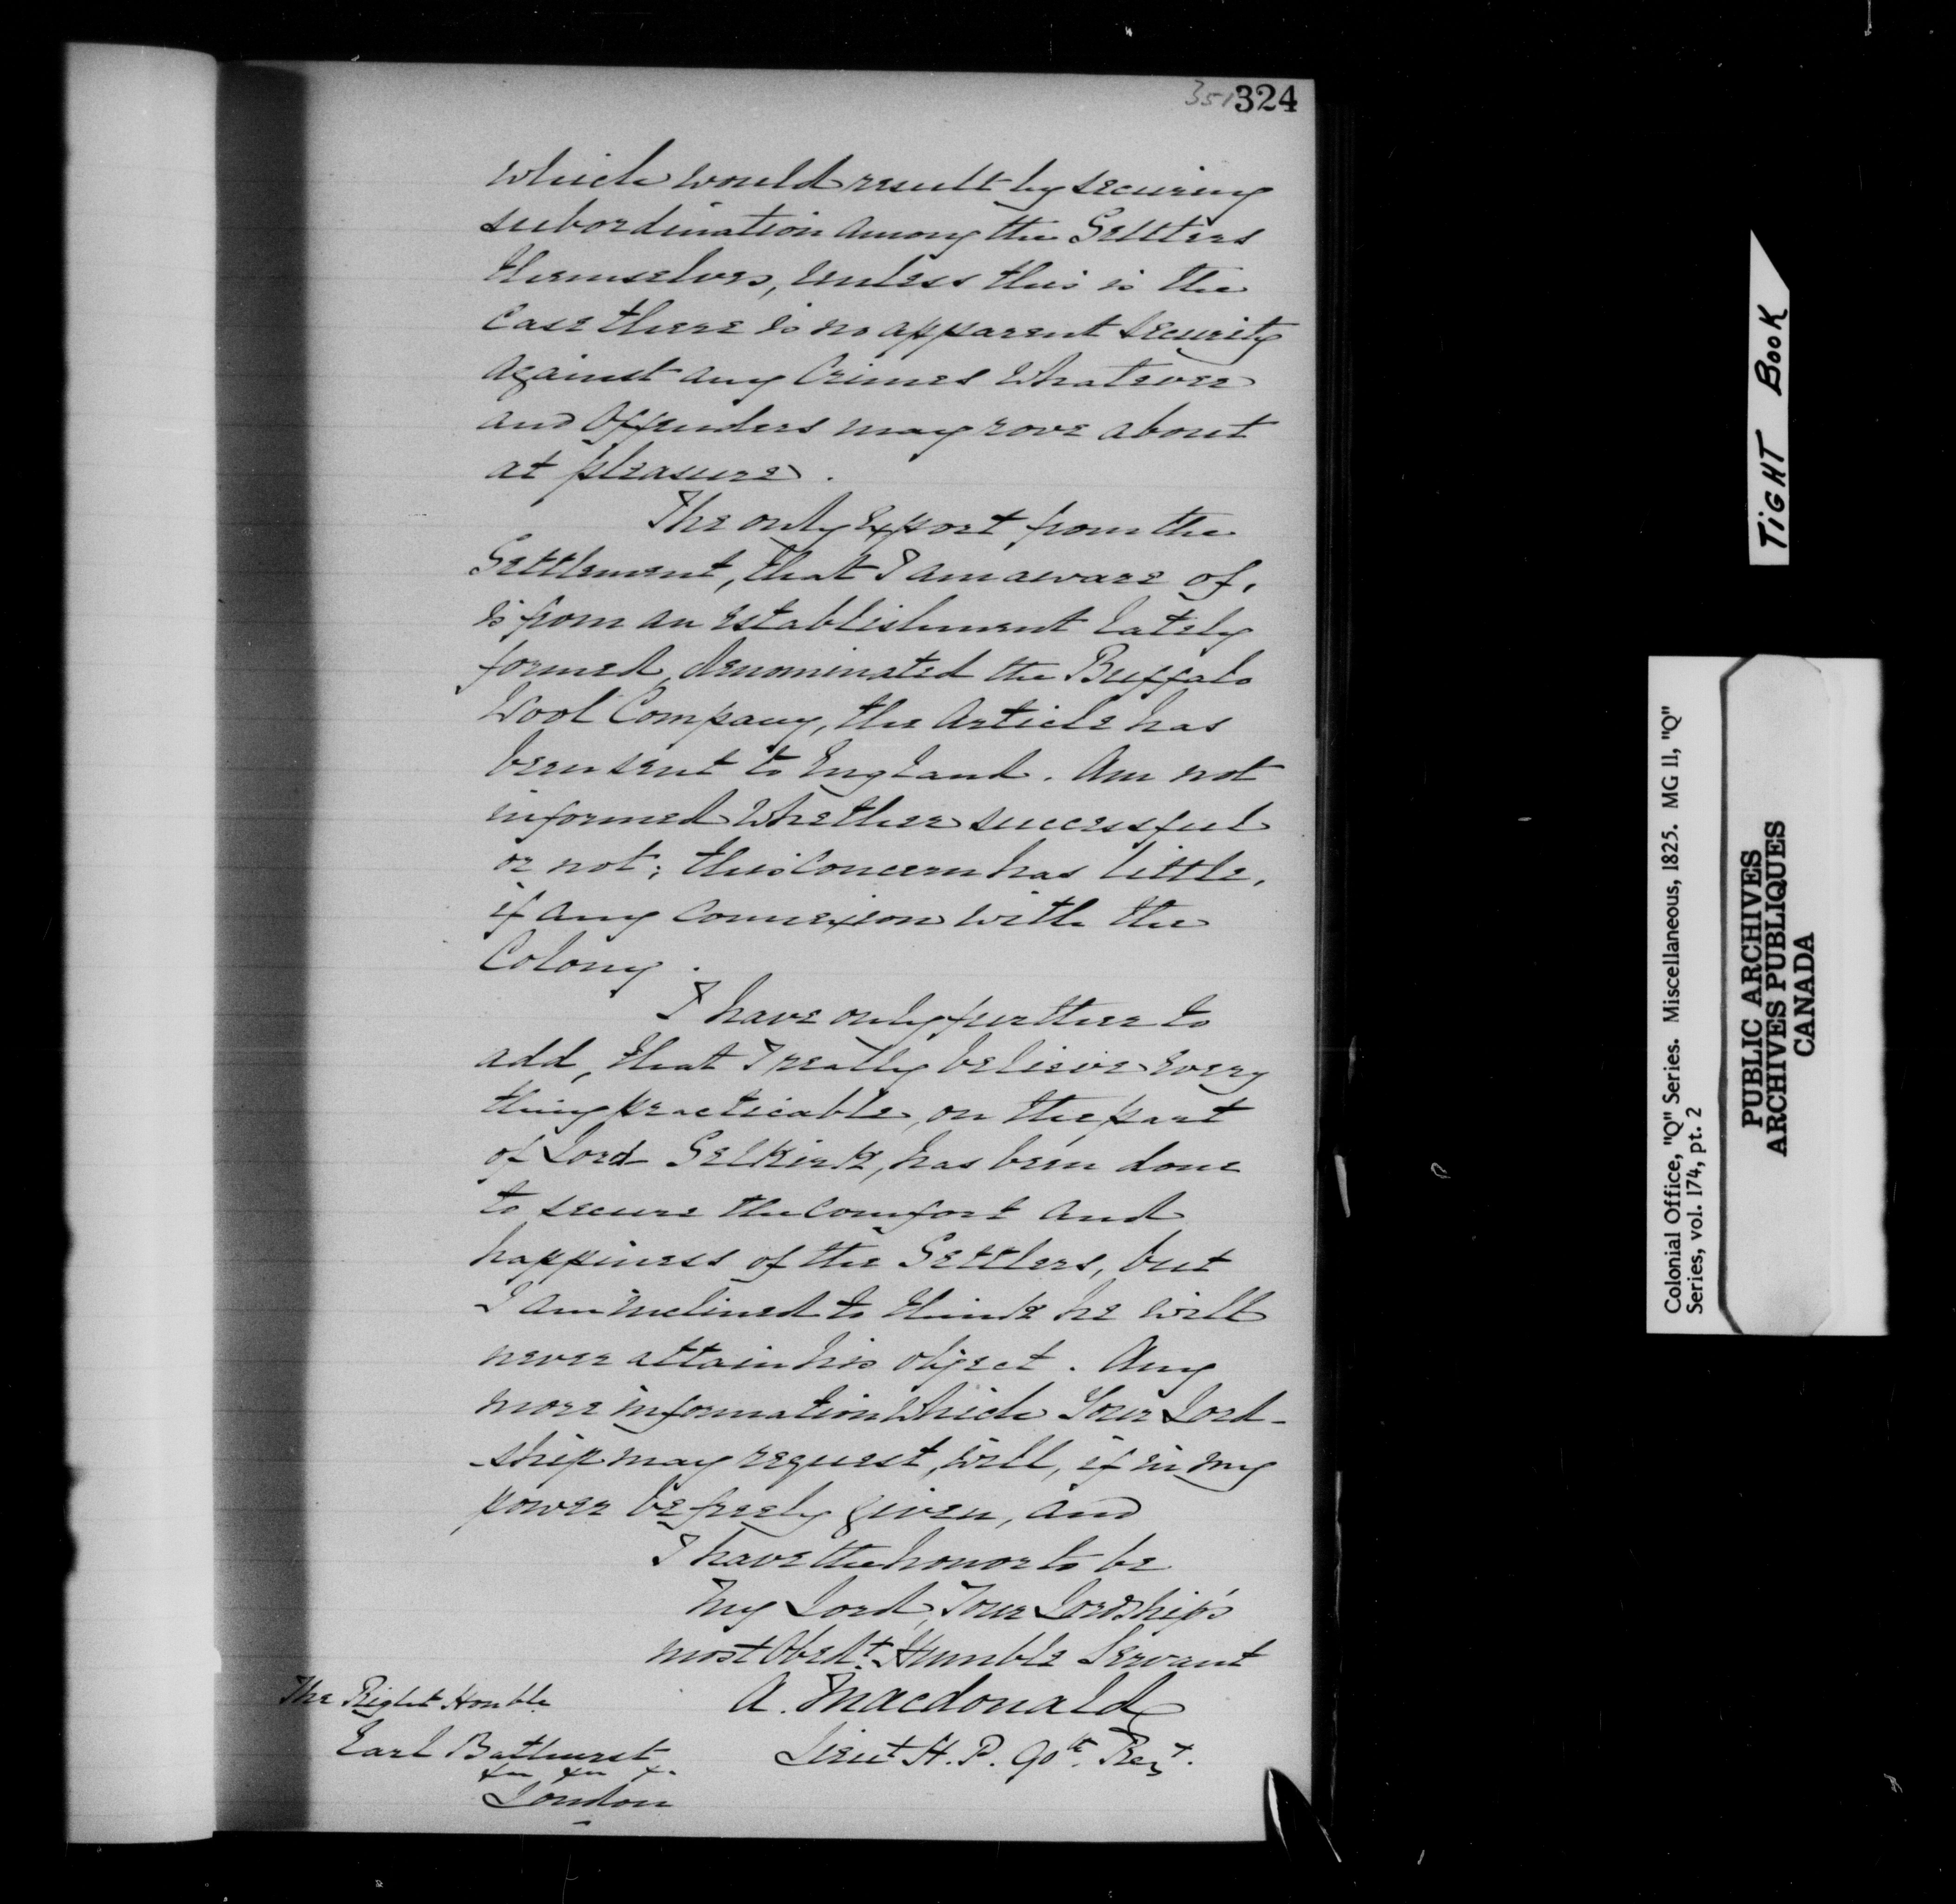 351 324
which would result by securing
subordination among the Settlers
themselves, unless this is the
case there is no apparent security
against any Crimes Whatever
and Offenders may rove about
at pleasure.
The only Export from the
Settlement, that I am aware of,
is from an establishment lately
formed, denominated the Buffalo
Wool Company, the Article has
been sent to England. Am not
informed Whether successful
or not; this Concern has little,
if any Connexion with the
Colony.
I have only further to
add, that I really believe every
thing practicable, on the part
of Lord Selkirk, has been done
to secure the Comfort and
happiness of the Settlers, but
I am inclined to think he will
never attain his object. Any
more information Which Your Lord-
ship may request, will, if in my
power be freely given, and
I have the honor to be
My Lord, Your Lordship's
most Obedt. Humble Servant
A. Macdonald
Lieut H. P. 90th. Regt.
The Right Honble.
Earl Bathurst
London
TIGHT BOOK
Colonial Office, "Q" Series. Miscellaneous, 1825. MG 11, "Q"
Series, vol. 174, pt. 2
PUBLIC ARCHIVES
ARCHIVES PUBLIQUES
CANADA